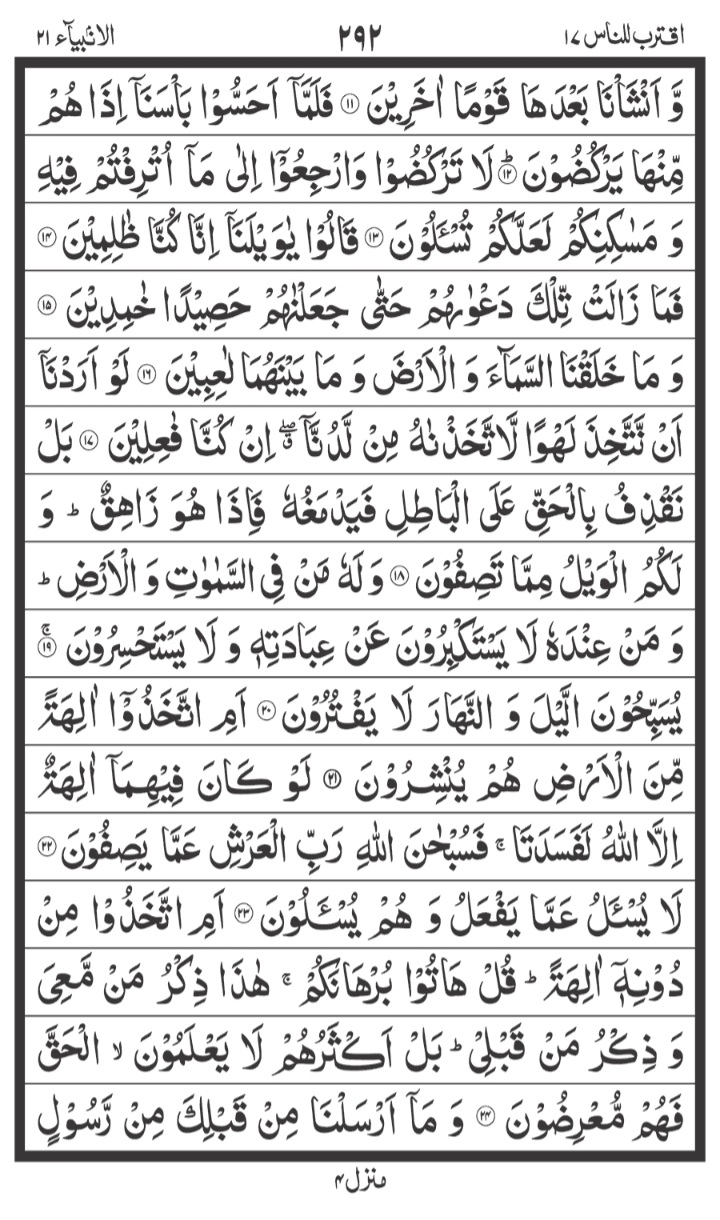 اقترب للناس ۱۷ ۲۹۲ الانبیآء ۲۱
وَّ اَنْشَاْنَا بَعْدَهَا قَوْمًا اٰخَرِیْنَ ۝۱۱ فَلَمَّاۤ اَحَسُّوْا بَاْسَنَاۤ اِذَا هُمْ
مِّنْهَا یَرْكُضُوْنَ ۝ؕ۱۲ لَا تَرْكُضُوْا وَارْجِعُوْۤا اِلٰى مَاۤ اُتْرِفْتُمْ فِیْهِ
وَ مَسٰكِنِكُمْ لَعَلَّكُمْ تُسْـَٔلُوْنَ ۝۱۳ قَالُوْا یٰوَیْلَنَاۤ اِنَّا كُنَّا ظٰلِمِیْنَ ۝۱۴
فَمَا زَالَتْ تِّلْكَ دَعْوٰىهُمْ حَتّٰى جَعَلْنٰهُمْ حَصِیْدًا خٰمِدِیْنَ ۝۱۵
وَ مَا خَلَقْنَا السَّمَآءَ وَ الْاَرْضَ وَ مَا بَیْنَهُمَا لٰعِبِیْنَ ۝۱۶ لَوْ اَرَدْنَاۤ
اَنْ نَّتَّخِذَ لَهْوًا لَّاتَّخَذْنٰهُ مِنْ لَّدُنَّاۤ ۖۗ اِنْ كُنَّا فٰعِلِیْنَ ۝۱۷ بَلْ
نَقْذِفُ بِالْحَقِّ عَلَى الْبَاطِلِ فَیَدْمَغُهٗ فَاِذَا هُوَ زَاهِقٌ ؕ وَ
لَكُمُ الْوَیْلُ مِمَّا تَصِفُوْنَ ۝۱۸ وَ لَهٗ مَنْ فِی السَّمٰوٰتِ وَ الْاَرْضِ ؕ
وَ مَنْ عِنْدَهٗ لَا یَسْتَكْبِرُوْنَ عَنْ عِبَادَتِهٖ وَ لَا یَسْتَحْسِرُوْنَ ۝ۚ۱۹
یُسَبِّحُوْنَ الَّیْلَ وَ النَّهَارَ لَا یَفْتُرُوْنَ ۝۲۰ اَمِ اتَّخَذُوْۤا اٰلِهَةً
مِّنَ الْاَرْضِ هُمْ یُنْشِرُوْنَ ۝۲۱ لَوْ كَانَ فِیْهِمَاۤ اٰلِهَةٌ
اِلَّا اللّٰهُ لَفَسَدَتَا ۚ فَسُبْحٰنَ اللّٰهِ رَبِّ الْعَرْشِ عَمَّا یَصِفُوْنَ ۝۲۲
لَا یُسْـَٔلُ عَمَّا یَفْعَلُ وَ هُمْ یُسْـَٔلُوْنَ ۝۲۳ اَمِ اتَّخَذُوْا مِنْ
دُوْنِهٖۤ اٰلِهَةً ؕ قُلْ هَاتُوْا بُرْهَانَكُمْ ۚ هٰذَا ذِكْرُ مَنْ مَّعِیَ
وَ ذِكْرُ مَنْ قَبْلِیْ ؕ بَلْ اَكْثَرُهُمْ لَا یَعْلَمُوْنَ ۙ الْحَقَّ
فَهُمْ مُّعْرِضُوْنَ ۝۲۴ وَ مَاۤ اَرْسَلْنَا مِنْ قَبْلِكَ مِنْ رَّسُوْلٍ
منزل۴